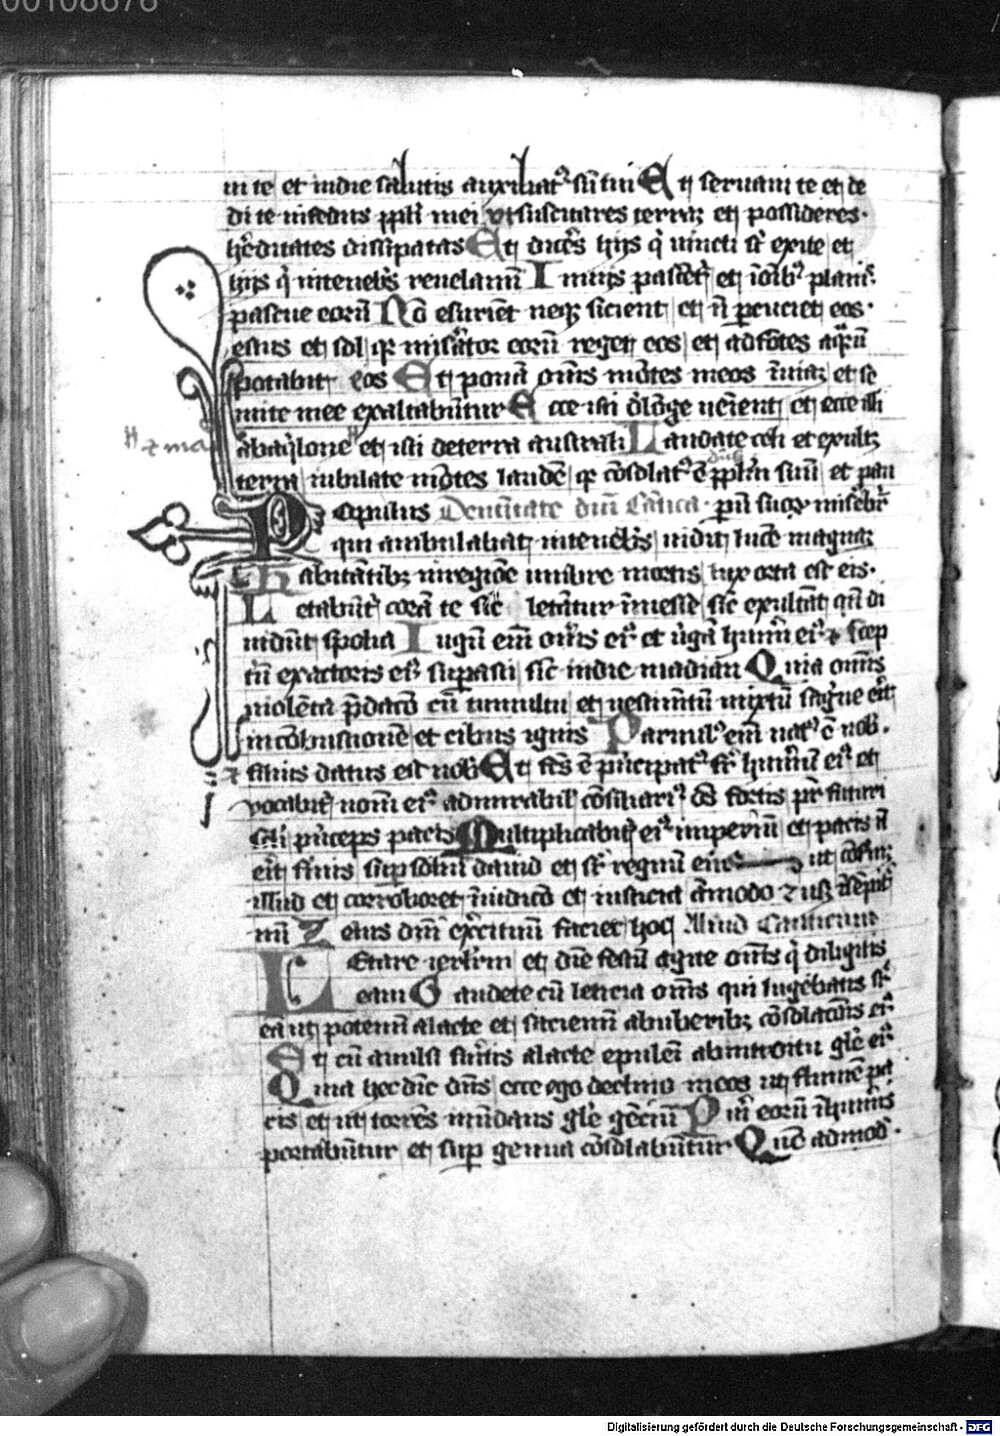 00108676
in te et in die salutis auxiliatꝰ sū tui Et seruaui te et de
di te in fedus ppli mei ut suscitares terrā et possideres.
hēditates dissipatas Et diceres hijs q̄ vincti st̄ exite et
hijs q̄ in tenebris reuelamī In uijs pascēt̄ et ī oībꝰ planis
pascue eorū Nō esuriēt neqꝫ sicient et nō percuciet eos.
estus et sol qꝛ misātor eorū reget eos et ad fōtes aq̄rū
potabit eos Et ponā om̄s mōtes meos ī uiā et se
mite mee exaltabūtur Ecce isti de lōge uēient et ecce illi
ab aq̄lone et isti de terra australi Laudate celi et exulta
terra iubilate mōtes laudē qꝛ cōsolatꝰ ē pplm suū et pau
Populus
qui ambulabat in tenebris uidit lucē magnā
Habitātibꝫ in regiōe umbre mortis lux orta est eis.
Letabūt̄ corā te sic letātur ī messe sic exultāt qn̄ di
uidūt spolia Iugū em̄ oneris eiꝰ et uirgā humeri eiꝰ et scep
trū exactoris eiꝰ supasti sic in die madian Quia omnis
uiolēta p̄dacō cū tumultu et uestimētū mixtū sāgīe erit
in cōbustionē et cibus ignis Paruulꝰ em̄ natꝰ ē nob.
filius datus est nob Et fc̄s ē p̄ncipatꝰ sr̄ humerū eiꝰ et
vocabit̄ nomē eiꝰ admirabil cōsiliariꝰ ds̄ fortis pr̄ futuri
scl̄i p̄nceps pacis Multiplicabit̄ eiꝰ imperiū et pacis nō
erit finis sup soliū dauid et sr̄ regnū eius ut cōfir
illud et corroboret ī iudicō et iusticia amodo et usqꝫ ī sēpit
nū Zelus dn̄i exercituū faciet hoc Aliud Canticum
Letare ierl̄m et diē festū agite om̄s q̄ diligitis
eam Gaudete cū leticia om̄s qui lugebatis sr̄
eā ut potemī a lacte et saciemī ab uberibꝫ cōsolacōis eiꝰ
Et cū auulsi fuitis a lacte epulēi ab introitu glē eiꝰ
Quia hec dic̄ dn̄s ecce ego declino in eos ut flumē pa
cis et ut torrēs inūdans glē gēciū Pu eorū ī humeris
portabūtur et sup genua cōsolabūtur Quō admod.
Digitalisierung gefördert durch die Deutsche Forschungsgemeinschaft - DFG